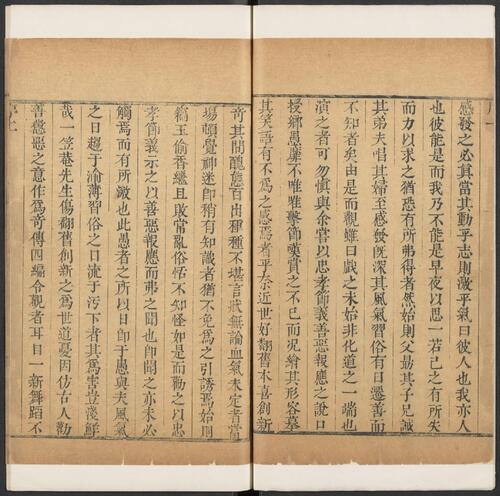 感發之必真當其動乎志則激乎氣曰彼人也我亦人
也彼能是而我乃不能是早夜以思一若己之有所失
而力以求之猶恐有所弗得者然始則父勗其子兄誡
其弟夫唱其婦至感發旣深其風氣習俗有日遷善而
不知者矣由是而觀雖曰戲之未始非化道之一端也
演之者可勿慎與余嘗以忠孝節義善惡報應之說口
授鄉愚靡不唯唯擊節嘆賞之不已而况繪其形容摹
其笑語有不爲之感焉者乎奈近世好翻舊本喜創新
奇其間醜態百出種種不堪言哉無論血氣未定者當
場頓覺神迷即稍有知識者猶不免爲之引誘焉始則
竊玉偷香繼且敗常亂俗恬不知怪如是而勸之以忠
孝節義示之以善惡報應而弗之聞也即聞之亦未必
觸焉而有所敵也此愚者之所以日即于愚與夫風氣
之日趨于渝薄習俗之日流于污下者其爲害豈淺鮮
哉一笠菴先生傷翻舊創新之爲世道憂因仿古人勸
善懲惡之意作爲奇傳四編令觀者耳目一新舞蹈不